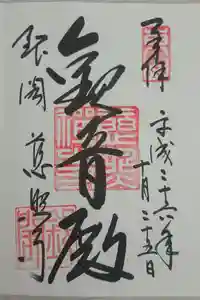 奉拝
平成二十六年
十月二十五日
観音殿
銀閣 慈照寺